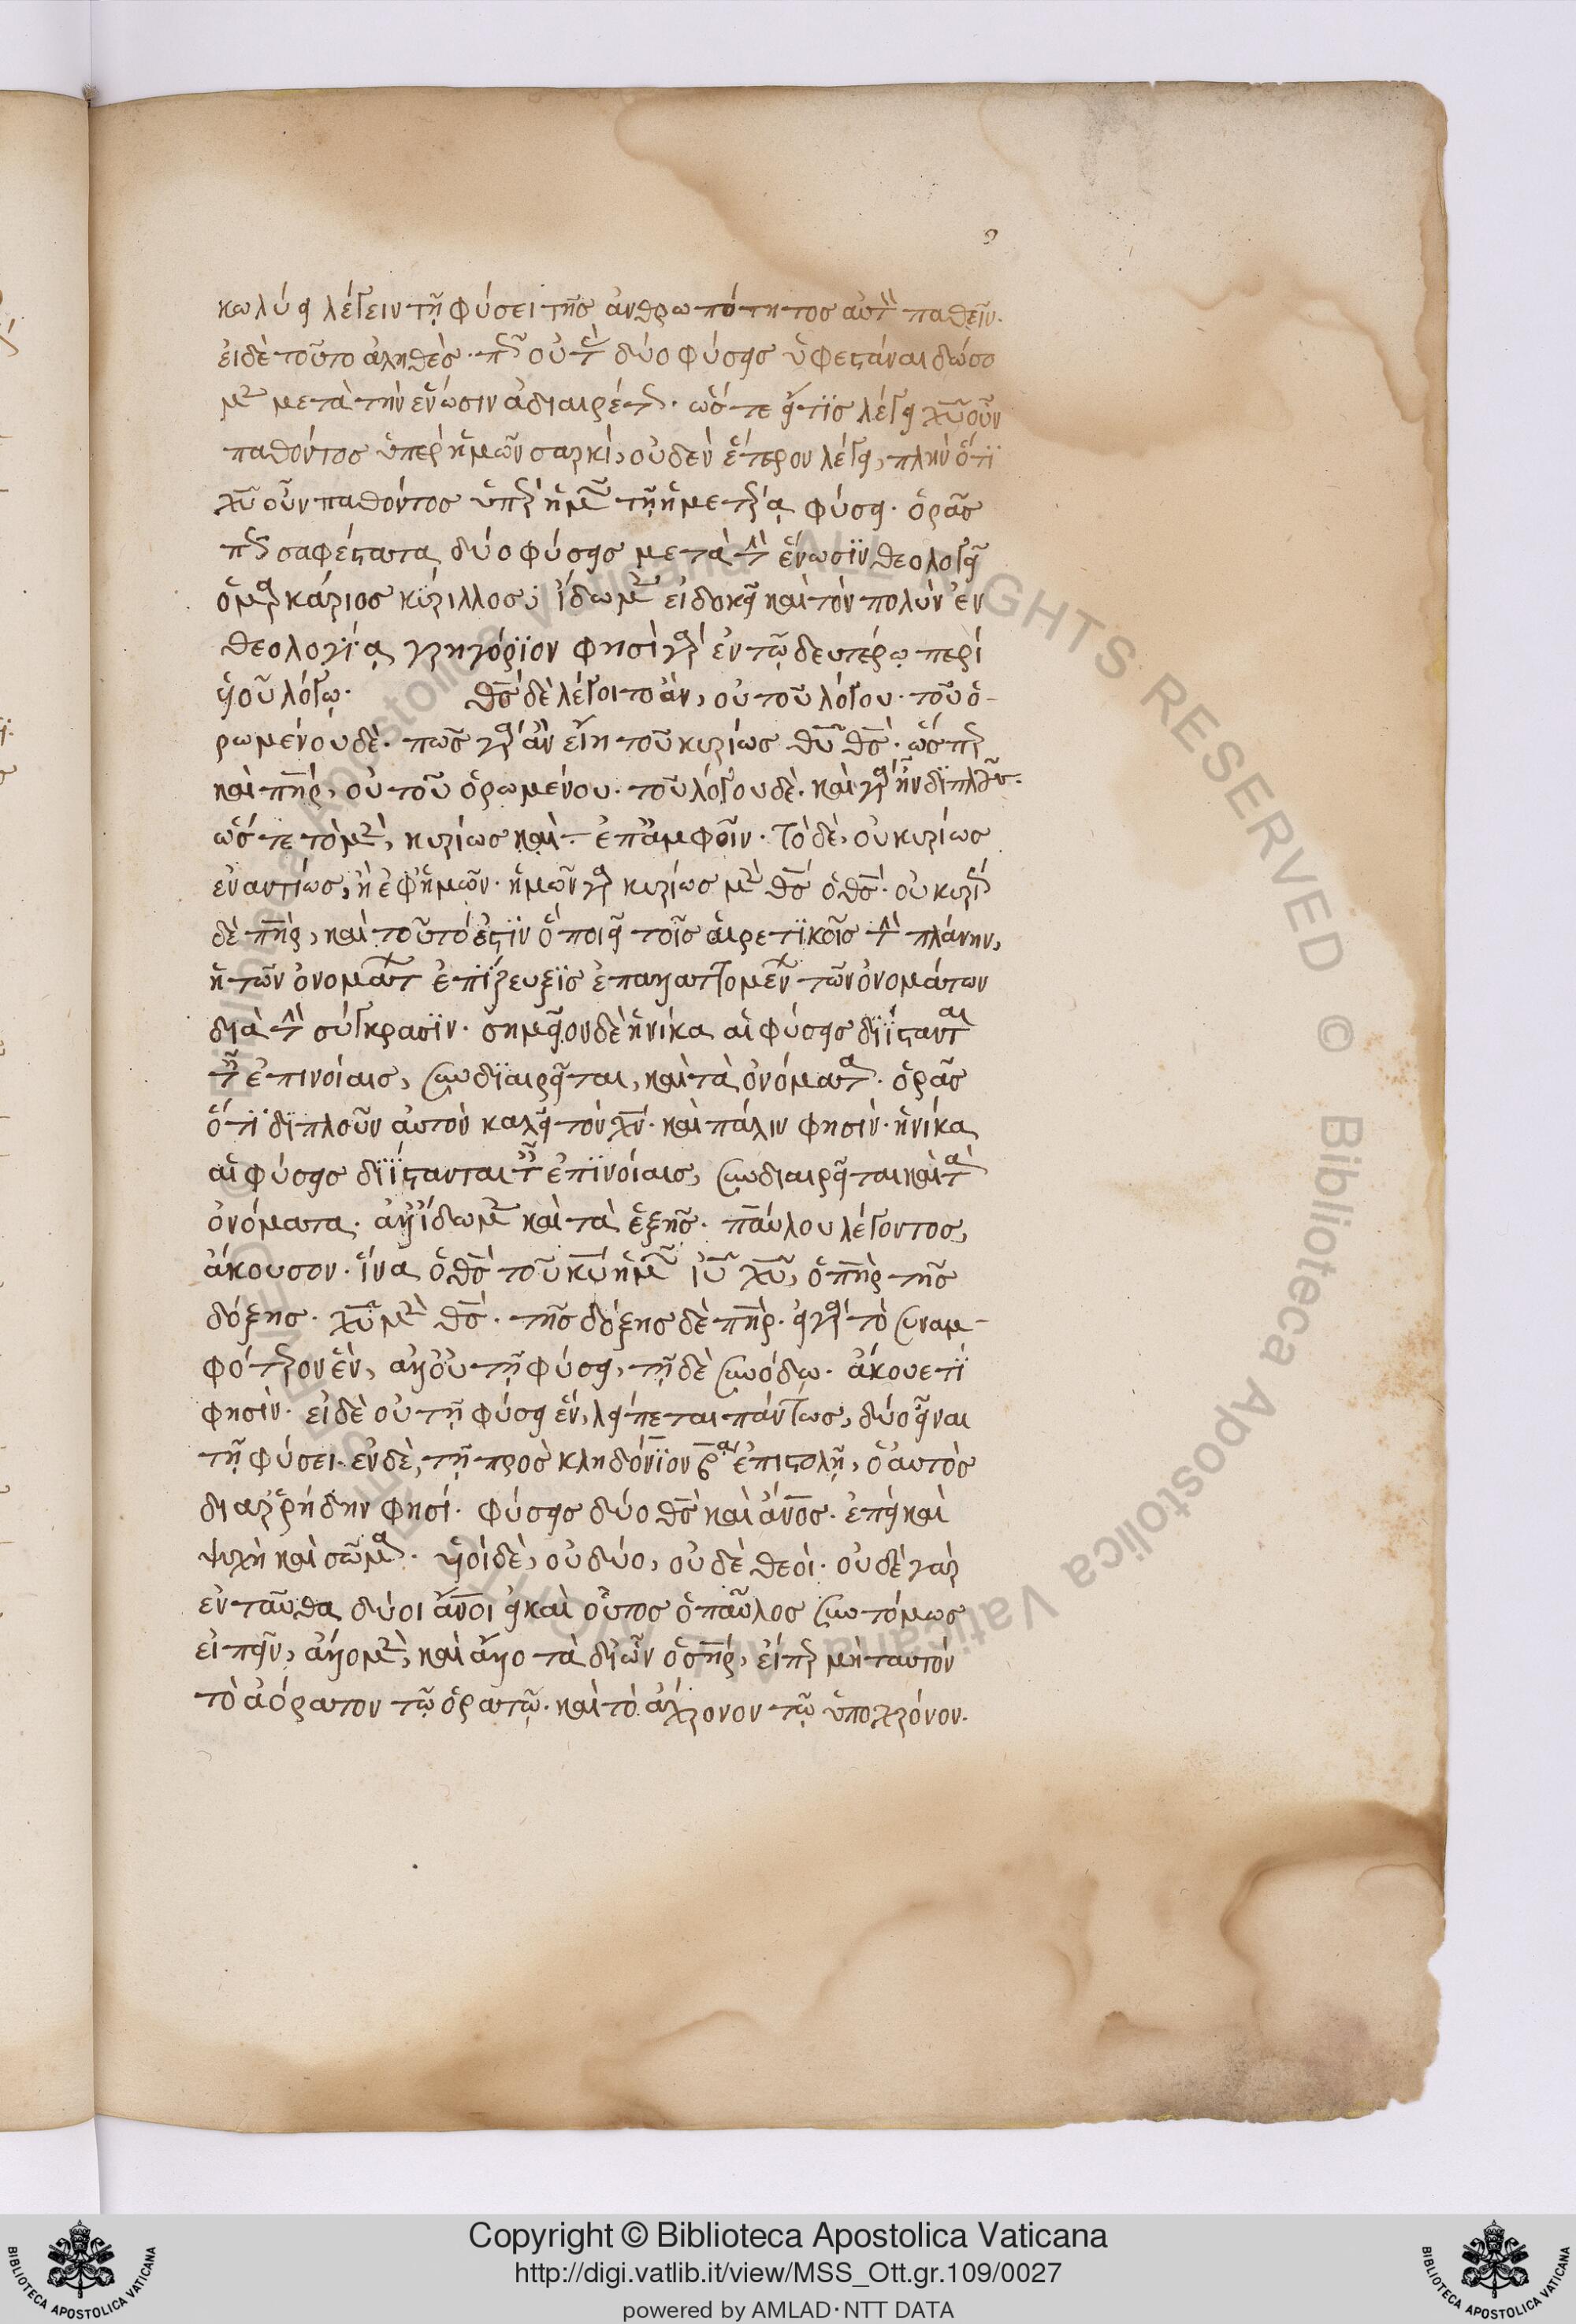 9
κωλύει λέγειν τῇ φύσει τῆς ἀνθρωπότητος αὐτὸν παθεῖν·
εἰ δὲ τοῦτο ἀληθὲς· πῶς οὐ τὰς δύο φύσεις ὑφεστάναι δώσο
μεν μετὰ τὴν ἕνωσιν ἀδιαιρέτως· ὥς τε εἴ τϊς λέγει χῦ οὖν
παθόντος ὑπὲρ ἡμῶν σαρκὶ, οὐδὲν ἕτερον λέγει, πλὴν ὅτϊ
χῦ οὖν παθόντος ὑπὲρ ἡμῶν τῇ ἡμετέρᾳ φύσει· ὁρᾶς
πῶς σαφέστατα δύο φύσεις μετὰ τὴν ἕνωσϊν θεολογεῖ
ὁ μακάριος κύριλλος; ἴδωμεν εἰ δοκεῖ καὶ τὸν πολὺν ἐν
θεολογίᾳ γρηγόρϊον φησὶ γὰρ ἐν τῷ δευτέρῳ περὶ
ὑοῦ λόγῳ· θς δὲ λέγοιτο ἂν, οὐ τοῦ λόγου· τοῦ ὁ-
ρωμένου δὲ· πῶς γὰρ ἂν εἴη τοῦ κυρίως θῦ θς· ὥσπερ
καὶ πηρ, οὐ τοῦ ὁρωμένου· τοῦ λόγου δὲ· καὶ γὰρ ἦν διπλοῦς·
ὥς τε τὸ μὲν, κυρίως καὶ ἐπ' ἀμφοῖν· τὸ δὲ, οὐ κυρίως
ἐναντίως, ἢ ἐφ' ἡμῶν· ἡμῶν γὰρ κυρίως μὲν θς ὁ θς· οὐ κυρίως
δὲ πηρ, καὶ τοῦτό ἐστϊν ὃ ποιεῖ τοῖς αἱρετϊκοῖς τὴν πλάνην,
ἡ τῶν ὀνομάτων ἐπίζευξϊς ἐπαλλαττομένων τῶν ὀνομάτων
διὰ τὴν σύγκρασϊν· σημεῖον δὲ ἡνίκα αἱ φύσεις διΐστανται
ταῖς ἐπινοίαις, συνδϊαιρεῖται, καὶ τὰ ὀνόματα· ὁρᾶς
ὅτϊ διπλοῦν αὐτὸν καλεῖ τὸν χν· καὶ πάλιν φησὶν· ἡνίκα
αἱ φύσεις διΐστανται ταῖς ἐπϊνοίαις, συνδιαιρεῖται καὶ τὰ
ὀνόματα· ἀλλ' ἴδωμεν καὶ τὰ ἑξῆς· παύλου λέγοντος,
ἄκουσον· ἵνα ὁ θς τοῦ κυ ἡμῶν ιυ χυ, ὁ πηρ τῆς
δόξης· χυ μὲν θς· τῆς δόξης δὲ πηρ· εἰ γὰρ τὸ συναμ-
φότερον ἓν, ἀλλ' οὐ τῇ φύσει, τῇ δὲ συνόδῳ· ἄκουε τί
φησὶν· εἰ δὲ οὐ τῇ φύσει ἓν, λείπεται πάντως, δύο εἶναι
τῇ φύσει· ἐν δὲ, τῇ πρὸς κληδόνϊον α ἐπιστολῇ, ὁ αὐτὸς
διαρρήδην φησί· φύσεις δύο θς καὶ ανος· ἐπεὶ καὶ
ψυχὴ καὶ σῶμα· ὑοὶ δὲ, οὐ δύο, οὐ δὲ θεοὶ· οὐ δὲ γὰρ
ἐνταῦθα δύοι ανοι εἰ καὶ οὗτος ὁ παῦλος συντόμως
εἰπεῖν, ἄλλο μὲν, καὶ ἄλλο τὰ δι' ὧν ὁ σηρ, εἴπερ μὴ ταυτὸν
τὸ ἀόρατον τῷ ὁρατῷ· καὶ τὸ ἄχρονον τῷ ὑποχρόνον·
Copyright © Biblioteca Apostolica Vaticana
http://digi.vatlib.it/view/MSS_Ott.gr.109/0027
powered by AMLAD·NTT DATA